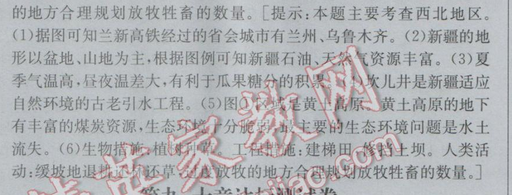 的地方合理规划放牧牲畜的数量。[提示:本题主要考查西北地区。
(1)据图可知兰新高铁经过的省会城市有兰州、乌鲁木齐。(2)新疆的地
形以盆地、山地为主,根据图例可知新疆石油、天然气资源丰富。(3)夏
季气温高,昼夜温差大,有利于瓜果糖分的积累。坎儿井是新疆适应
自然环境的古老引水工程。(5)图 区域是黄土高原。黄土高原的地下
有丰富的煤炭资源,生态环境十分脆弱,最主要的生态环境问题是水土
流失。(6)生物措施:植树 工程措施:建梯田、修挡土坝。人类活
动:缓坡地退耕还林还草 过度放牧的地方合理规划放牧牲畜的数量。]